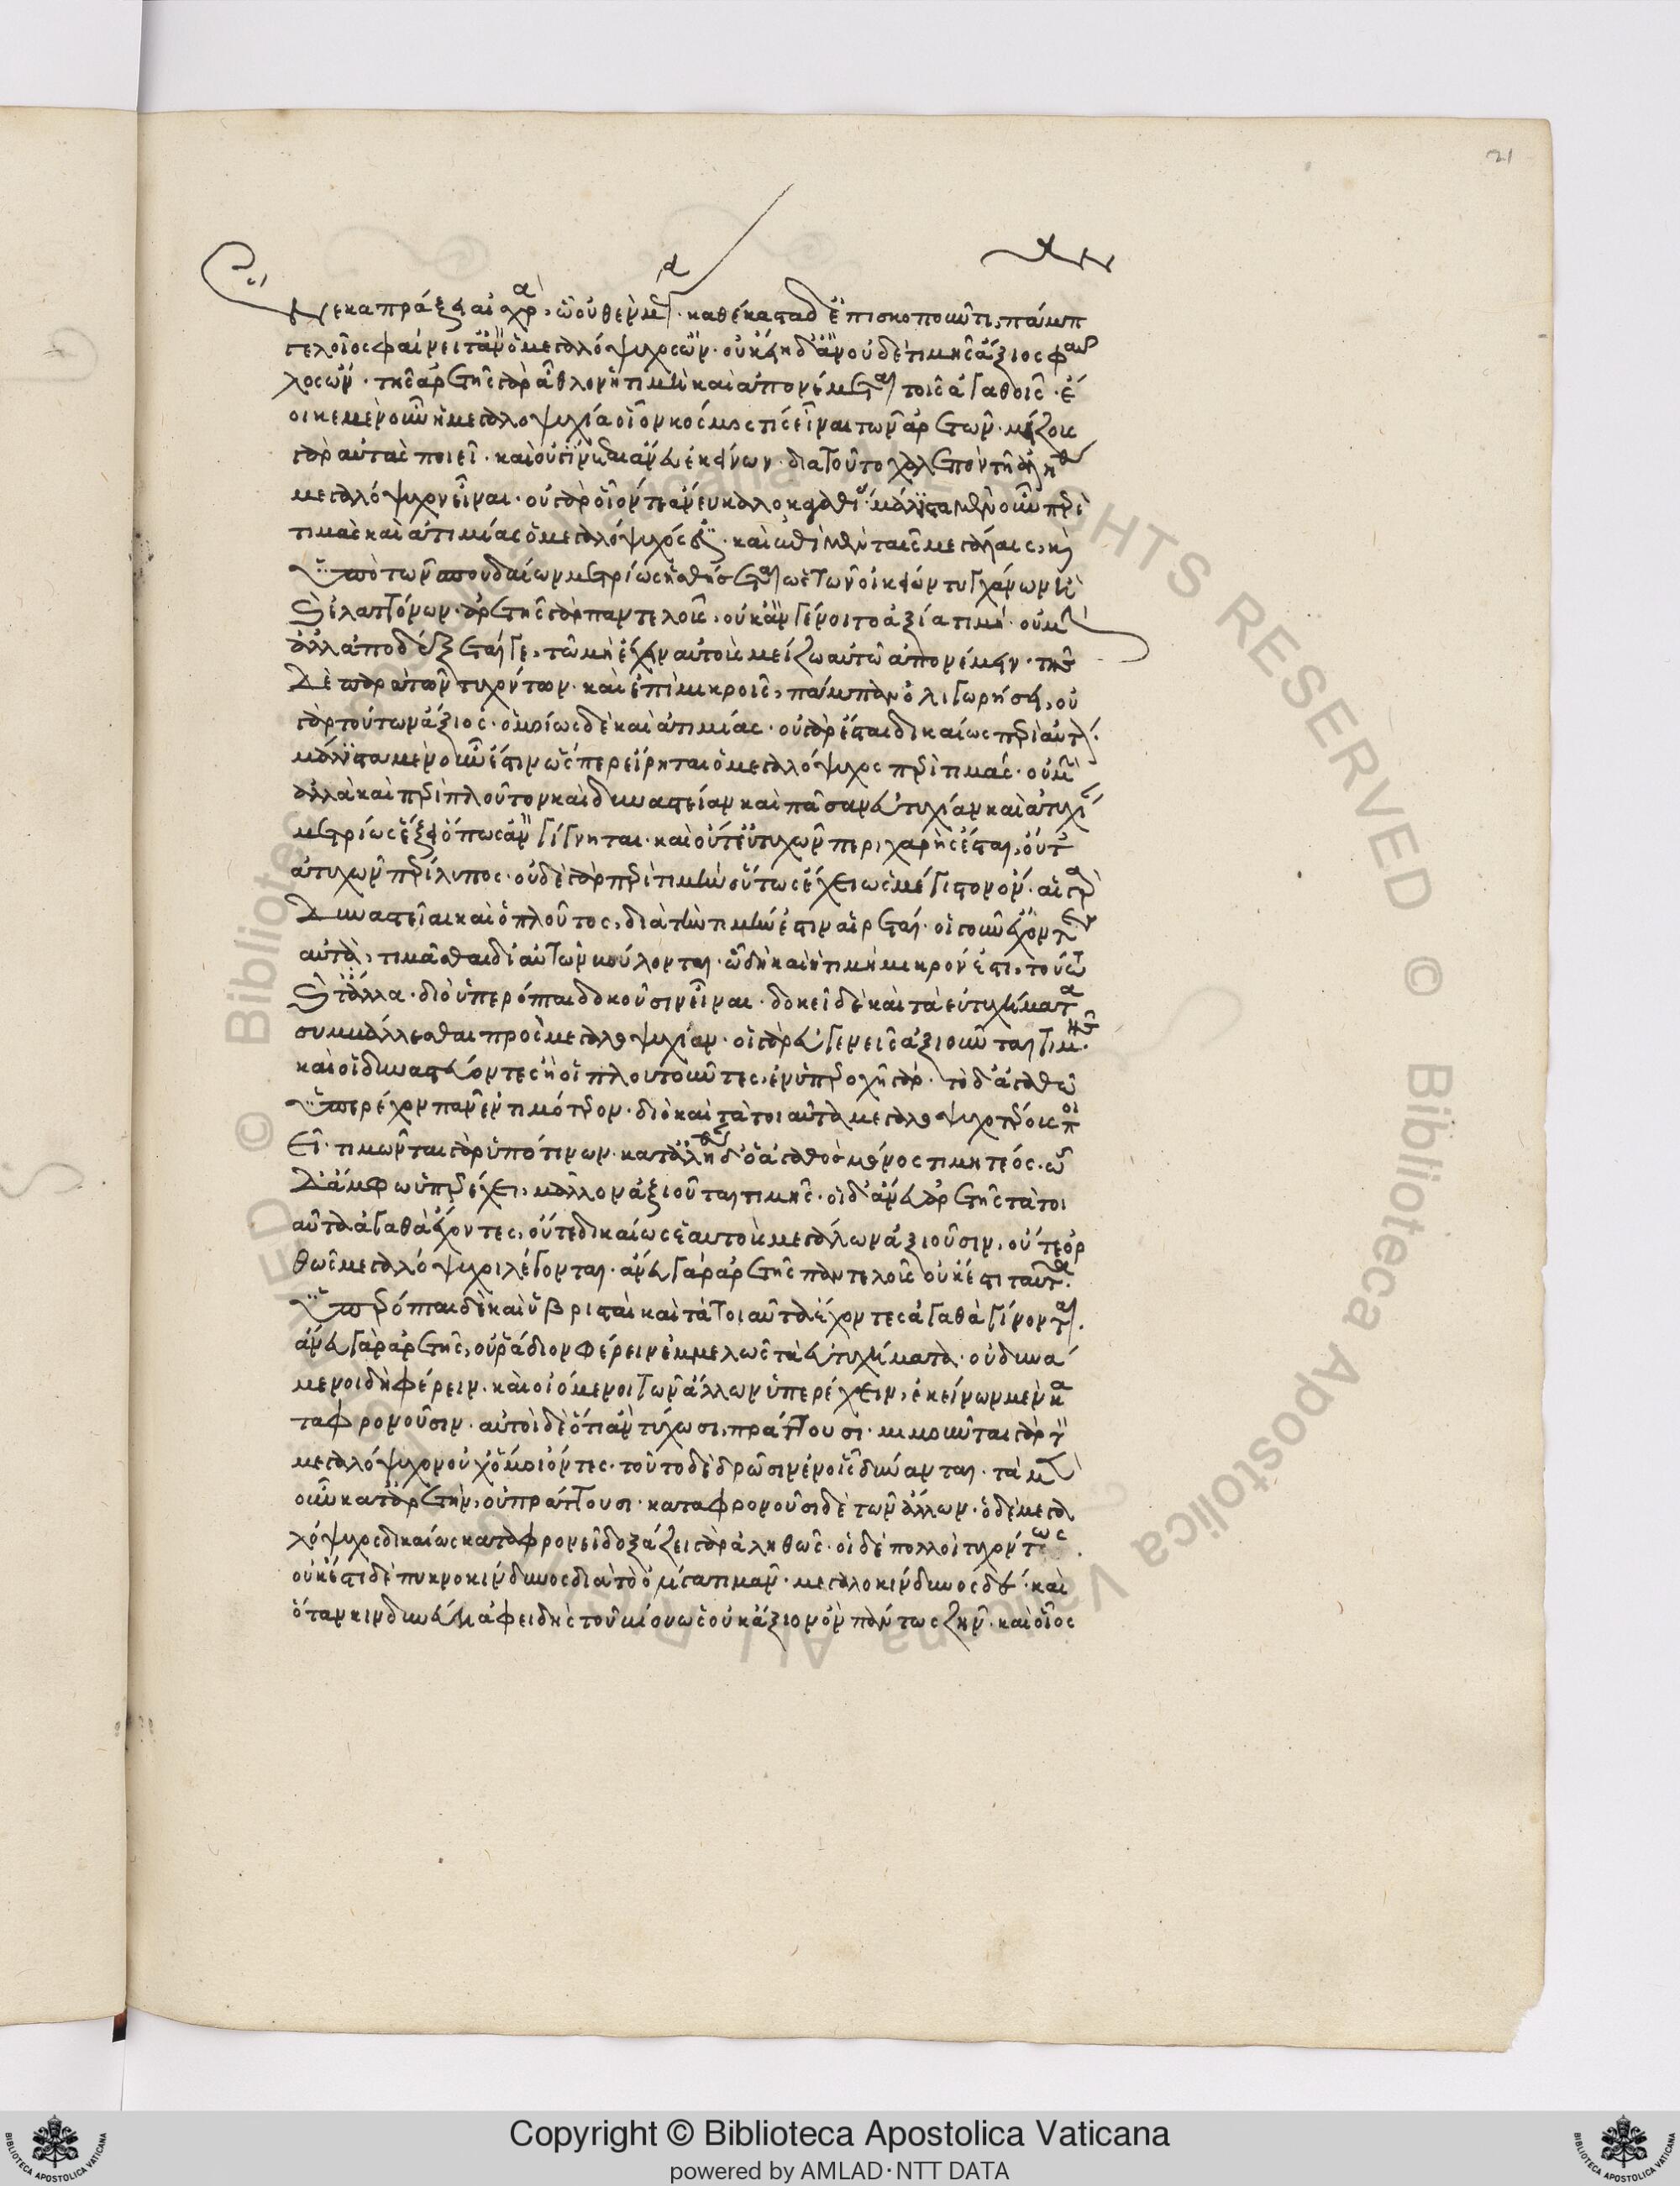 21
νεκα πράξει αἰσχρά, ᾧ οὐθὲν μέγα· καθέκαστα δ' ἐπισκοποῦντι, πάμπαν
γελοῖος φαίνειτ' ἂν ὁ μεγαλόψυχος ὤν· οὐκ εἴη δ' ἂν οὐδὲ τιμῆς ἄξιος φαῦ
λος ὤν· τῆς ἀρετῆς γὰρ ἆθλον ἡ τιμὴ καὶ ἀπονέμεται τοῖς ἀγαθοῖς· ἔ
οικε μὲν οὖν ἡ μεγαλοψυχία οἷον κόσμος τις εἶναι τῶν ἀρετῶν· μείζους
γὰρ αὐτὰς ποιεῖ· καὶ οὐ γίνεται ἄνευ ἐκείνων· διὰ τοῦτο χαλεπὸν τῇ ἀληθείᾳ
μεγαλόψυχον εἶναι· οὐ γὰρ οἷόν τε ἄνευ καλοκαγαθίας· μάλιστα μὲν οὖν περὶ
τιμὰς καὶ ἀτιμίας ὁ μεγαλόψυχός ἐστι· καὶ ἐπὶ μὲν ταῖς μεγάλαις, καὶ
ὑπὸ τῶν σπουδαίων μετρίως ἡσθήσεται ὡς τῶν οἰκείων τυγχάνων ἢ
καὶ ἐλαττόνων· ἀρετῆς γὰρ παντελοῦς, οὐκ ἂν γένοιτο ἀξία τιμή· οὐ μὴν
ἀλλ' ἀποδέξεταί γε, τῷ μὴ ἔχειν αὐτοὺς μείζω αὐτῷ ἀπονέμειν· τῆς
δὲ παρὰ τῶν τυχόντων· καὶ ἐπὶ μικροῖς, πάμπαν ὀλιγωρήσει, οὐ
γὰρ τούτων ἄξιος· ὁμοίως δὲ καὶ ἀτιμίας· οὐ γὰρ ἔσται δικαίως περὶ αὐτόν·
μάλιστα μὲν οὖν ἐστιν ὥσπερ εἴρηται ὁ μεγαλόψυχος περὶ τιμάς· οὐ μὴν
ἀλλὰ καὶ περὶ πλοῦτον καὶ δυναστείαν καὶ πᾶσαν εὐτυχίαν καὶ ἀτυχίαν
μετρίως ἕξει ὅπως ἂν γίγνηται· καὶ οὔτ' εὐτυχῶν περιχαρὴς ἔσται, οὔτ'
ἀτυχῶν περίλυπος· οὐδὲ γὰρ περὶ τιμὴν οὕτως ἔχει ὡς μέγιστον ὄν· αἱ γὰρ
δυναστεῖαι καὶ ὁ πλοῦτος, διὰ τὴν τιμήν ἐστιν αἱρεταί· οἱ γοῦν ἔχοντες
αὐτὰ, τιμᾶσθαι δι' αὐτῶν βούλονται· ᾧ δὴ καὶ ἡ τιμὴ μικρόν ἐστι, τούτῳ
καὶ τἆλλα· διὸ ὑπερόπται δοκοῦσιν εἶναι· δοκεῖ δὲ καὶ τὰ εὐτυχήματα
συμβάλλεσθαι πρὸς μεγαλοψυχίαν· οἱ γὰρ εὐγενεῖς ἀξιοῦνται τιμῆς·
καὶ οἱ δυναστεύοντες ἢ οἱ πλουτοῦντες, ἐν ὑπεροχῇ γάρ· τὸ δ' ἀγαθῷ
ὑπερέχον πᾶν ἐντιμότερον· διὸ καὶ τὰ τοιαῦτα μεγαλοψυχοτέρους ποι
εῖ· τιμῶνται γὰρ ὑπό τινων· κατ' ἀλήθειαν δ' ὁ ἀγαθὸς μόνος τιμητέος· ᾧ
δ' ἄμφω ὑπερέχει, μᾶλλον ἀξιοῦται τιμῆς· οἱ δ' ἄνευ ἀρετῆς τὰ τοι
αῦτα ἀγαθὰ ἔχοντες, οὔτε δικαίως ἑαυτοὺς μεγάλων ἀξιοῦσιν, οὔτε ὀρ
θῶς μεγαλόψυχοι λέγονται· ἄνευ γὰρ ἀρετῆς παντελοῦς οὐκ ἔστι ταῦτα·
ὑπερόπται δὲ καὶ ὑβρισταὶ καὶ τὰ τοιαῦτα ἔχοντες ἀγαθὰ γίνονται·
ἄνευ γὰρ ἀρετῆς, οὐ ῥάδιον φέρειν ἐμμελῶς τὰ εὐτυχήματα· οὐ δυνά
μενοι δὴ φέρειν· καὶ οἰόμενοι τῶν ἄλλων ὑπερέχειν, ἐκείνων μὲν κα
ταφρονοῦσιν· αὐτοὶ δὲ ὅτι ἂν τύχωσι, πράττουσι· μιμοῦνται γὰρ τὸν
μεγαλόψυχον οὐχ ὅμοιοι ὄντες· τοῦτο δὲ δρῶσιν ἐν οἷς δύνανται· τὰ μὲν
οὖν κατ' ἀρετὴν, οὐ πράττουσι· καταφρονοῦσι δὲ τῶν ἄλλων· ὁ δὲ μεγα
λόψυχος δικαίως καταφρονεῖ δοξάζει γὰρ ἀληθῶς· οἱ δὲ πολλοὶ τυχόντως·
οὐκ ἔστι δὲ πυκνοκίνδυνος διὰ τὸ ὀλίγα τιμᾶν· μεγαλοκίνδυνος δέ· καὶ
ὅταν κινδυνεύῃ ἀφειδὴς τοῦ βίου ὡς οὐκ ἄξιον ὂν πάντως ζῆν· καὶ οἷος
Copyright © Biblioteca Apostolica Vaticana
powered by AMLAD·NTT DATA